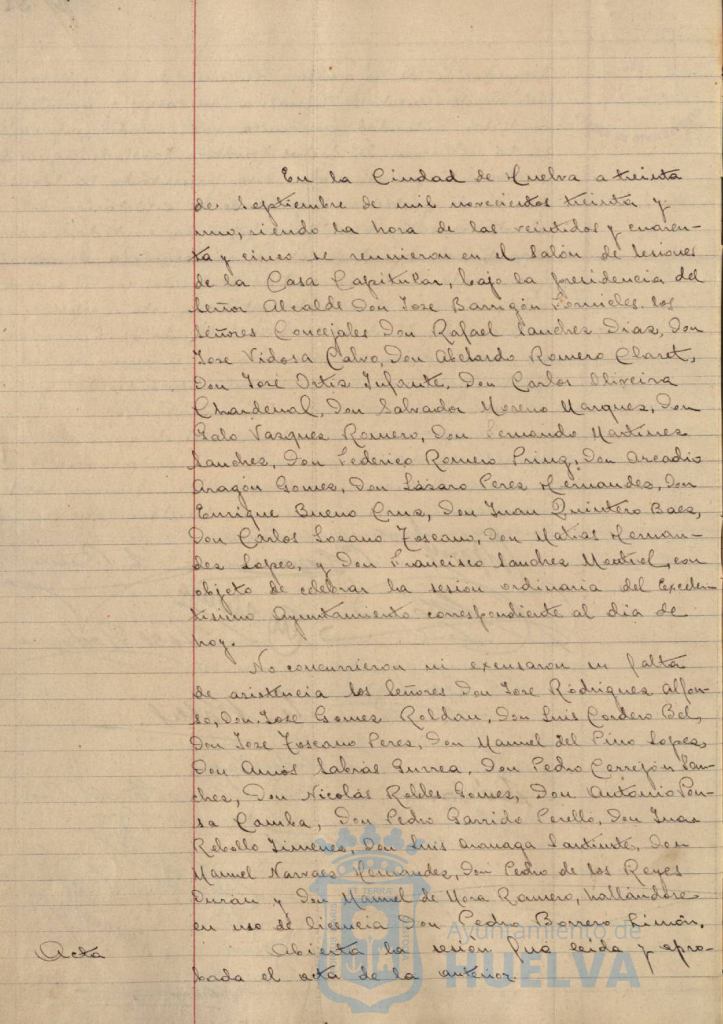 En la Ciudad de Huelva a treinta
de Septiembre de mil novecientos treinta y
uno, siendo la hora de las veintidos y cuaren-
ta y cinco se reunieron en el Salón de sesiones
de la Casa Capitular, bajo la presidencia del
Señor Alcalde Don José Barrigón Fornieles los
Señores Concejales Don Rafael Sanchez Diaz, Don
Jose Vidosa Calvo, Don Abelardo Romero Claret,
Don José Ortiz Infante, Don Carlos Oliveira
Chardenal, Don Salvador Moreno Marquez, Don
Galo Vazquez Romero, Don Fernando Martinez
Sanchez, Don Federico Romero Pring, Don Arcadio
Aragón Gomez, Don Lázaro Perez Hernandez, Don
Enrique Bueno Cruz, Don Juan Quintero Baez,
Don Carlos Lozano Toscano, Don Matias Hernan-
dez Lopez, y Don Francisco Sanchez Montiel, con
objeto de celebrar la sesion ordinaria del Excelen-
tisimo Ayuntamiento correspondiente al dia de
hoy.
No concurrieron ni excusaron su falta
de asistencia los Señores Don Jose Rodriguez Alfon-
so, Don Jose Gomez Roldan, Don Luis Cordero Bel,
Don Jose Toscano Perez, Don Manuel del Pino Lopez,
Don Amós Sabrás Gurrea, Don Pedro Cerrejón San-
chez, Don Nicolás Robles Gomez, Don Antonio Pou-
sa Camba, Don Pedro Garrido Perello, Don Juan
Rebollo Jimenez, Don Luis Santiuste, Don
Manuel Narvaez Hernandez, Don Pedro de los Reyes
Durán y Don Manuel de Mora Romero, hallándose
en uso de licencia Don Pedro Borrero Limón.
Acta Abierta la sesión fué leida y apro-
bada el acta de la anterior.
Ayuntamiento de
HUELVA